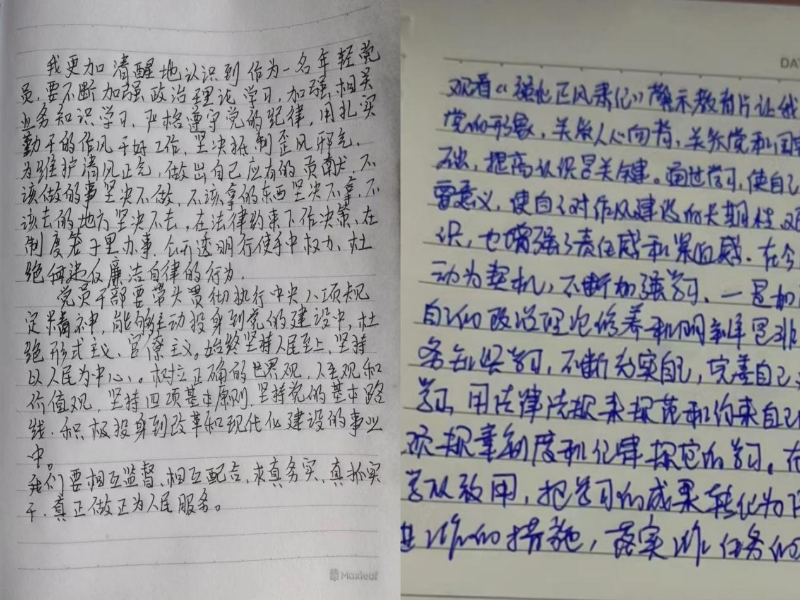 我更加清醒地认识到作为一名年轻党
员,要不断加强政治理论学习,加强相关
业务知识学习,严格遵守党的纪律,用扎实
勤干的作风干好工作,坚决抵制歪风邪气,
为维护清风正气,做出自己应有的贡献,不
该做的事坚决不做,不该拿的东西坚决不拿,不
该去的地方坚决不去,在法律约束下作决策、在
制度笼子里办事,公开透明行使手中权力,杜
绝何违反廉洁自律的行为.
党员干部要带头贯彻执行中央八项规
定精神,能够主动投身到党的建设中,杜
绝形式主义、官僚主义,始终坚持人民至上,坚持
以人民为中心,。树立正确的世界观、人生观和
价值观,坚持四项基本原则,坚持党的基本路
线.积极投身到改革和现代化建设的事业
中。
我们要相互监督、相互配合,求真务实,真抓实
干,真正做正为人民服务。
Maxleaf
DA
观看《强化正风肃纪》警示教育片让我
党的形象,关系人心向背,关系党和国
础,提高认识是关键。通过学习,使自己
要意义,使自己对作风建设的长期性
识,也增强了责任感和紧迫感.在今
动为契机,不断加强学习、一是加
自己的政治理论修养和明辨是非
务知识学习,不断充实自己,完善自己
学习,用法律法规来规范和约束自己
对规章制度和纪律规定的学习.在
学以致用,把学习的成果转化为
进工作的措施,落实工作任务的